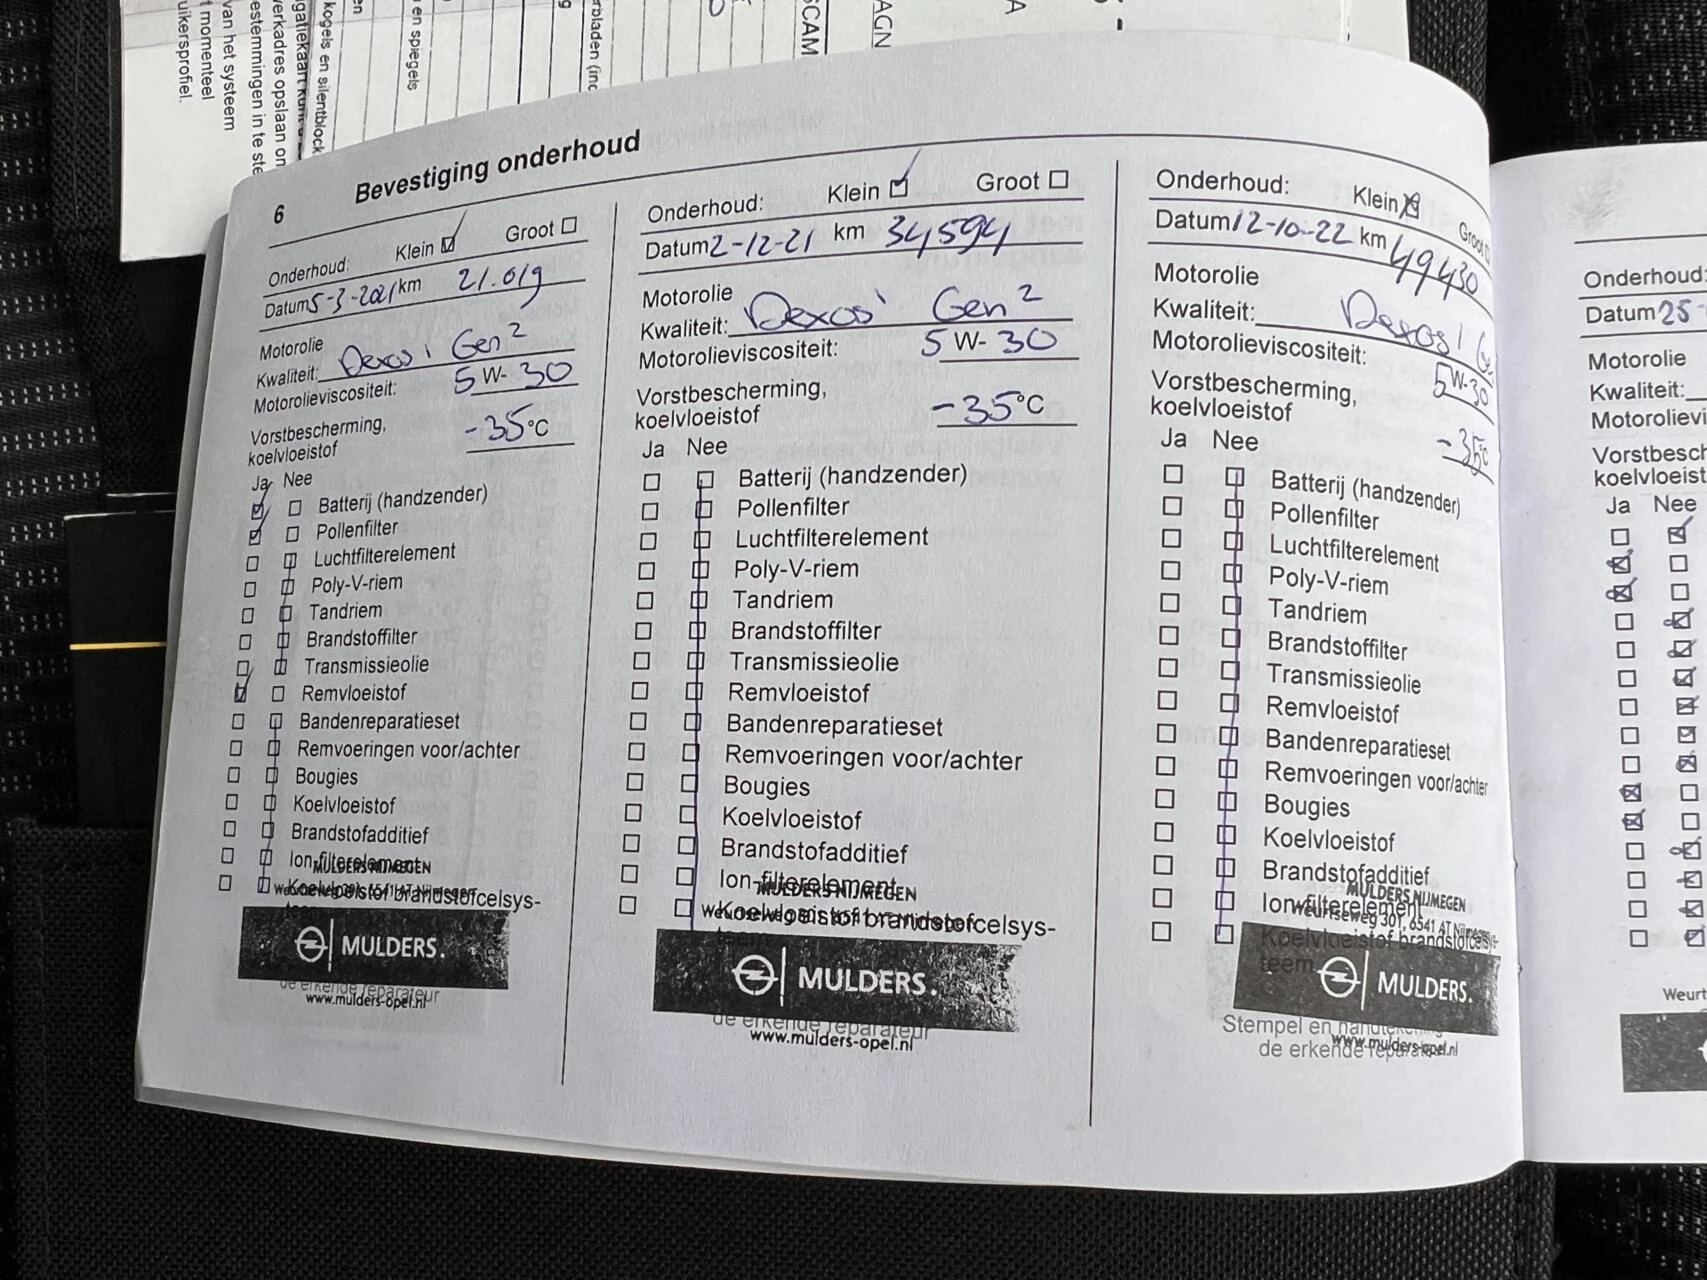 kogels en silentblock
en spiegels
van het systeem
momenteel
uikersprofiel.
SCAM
AGN
6
Bevestiging onderhoud
Onderhoud: Klein Groot
Datum 5-3-2021 km 21.019
Motorolie
Kwaliteit: Dexos 1 Gen 2
Motorolieviscositeit: 5 W- 30
Vorstbescherming,
koelvloeistof -35°C
Ja Nee
Batterij (handzender)
Pollenfilter
Luchtfilterelement
Poly-V-riem
Tandriem
Brandstoffilter
Transmissieolie
Remvloeistof
Bandenreparatieset
Remvoeringen voor/achter
Bougies
Koelvloeistof
Brandstofadditief
Ion-filterelement
MULDERS NIJMEGEN
Koelvloeistof brandstofcelsys-
MULDERS.
de erkende reparateur
www.mulders-opel.nl
Onderhoud: Klein Groot
Datum 2-12-21 km 34594
Motorolie
Kwaliteit: Dexos 1 Gen 2
Motorolieviscositeit: 5 W- 30
Vorstbescherming,
koelvloeistof -35°C
Ja Nee
Batterij (handzender)
Pollenfilter
Luchtfilterelement
Poly-V-riem
Tandriem
Brandstoffilter
Transmissieolie
Remvloeistof
Bandenreparatieset
Remvoeringen voor/achter
Bougies
Koelvloeistof
Brandstofadditief
Ion-filterelement
MULDERS NIJMEGEN
Koelvloeistof brandstofcelsys-
MULDERS.
de erkende reparateur
www.mulders-opel.nl
Onderhoud: Klein Groot
Datum 12-10-22 km 49430
Motorolie
Kwaliteit: Dexos 1
Motorolieviscositeit: 5W-30
Vorstbescherming,
koelvloeistof -35°C
Ja Nee
Batterij (handzender)
Pollenfilter
Luchtfilterelement
Poly-V-riem
Tandriem
Brandstoffilter
Transmissieolie
Remvloeistof
Bandenreparatieset
Remvoeringen voor/achter
Bougies
Koelvloeistof
Brandstofadditief
Ion-filterelement
MULDERS NIJMEGEN
Weurtseweg 301, 6541 AT Nijmegen
Koelvloeistof brandstofcelsys-
teem
MULDERS.
Stempel en handtekening
de erkende reparateur
www.mulders-opel.nl
Onderhoud:
Datum 25-
Motorolie
Kwaliteit:
Motorolievi
Vorstbesch
koelvloeist
Ja Nee
Weurt